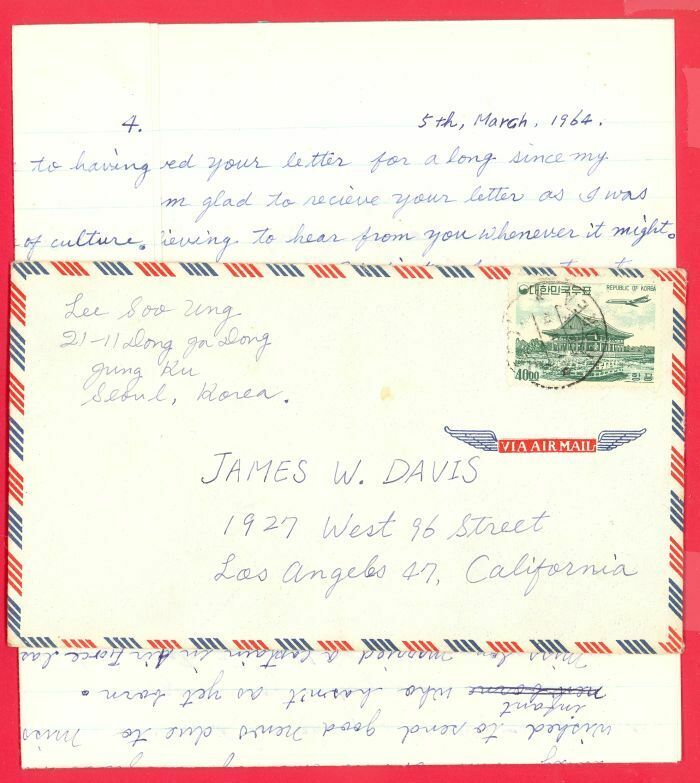 4.
5th, March, 1964.
to having ed your letter for a long since my
m glad to recieve your letter as I was
of culture. ieving to hear from you whenever it might.
Lee Soo Ung
21-11 Dong ja Dong
Jung Ku
Seoul, Korea.
대한민국우표
REPUBLIC OF KOREA
40.00
항공
VIA AIR MAIL
JAMES W. DAVIS
1927 West 96 Street
Los Angeles 47, California
wished to send good news due to Miss
infant
new borne who hasn't as yet born.
Miss Lee married a captain in Air Force